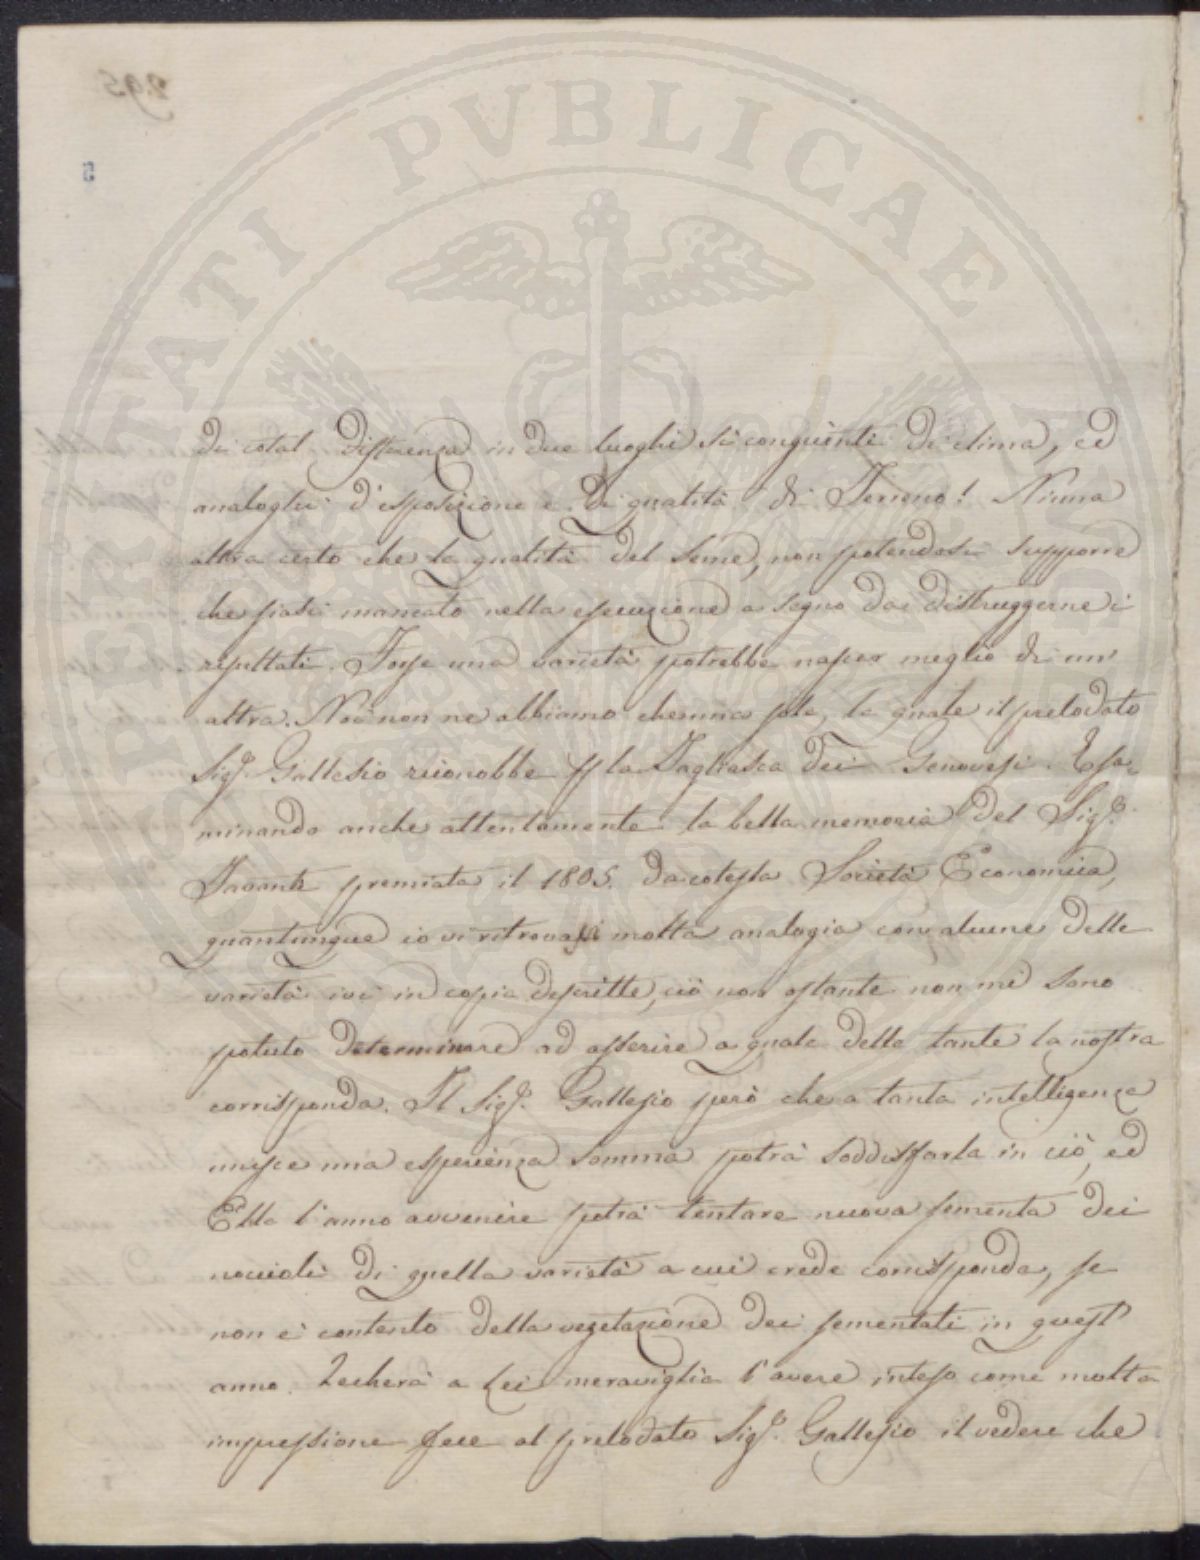 295
PROSPERITATI PVBLICAE
di cotal differenza in due luoghi sì congruenti di clima, ed
analoghi d'esposizione e di qualità di Terreno! Niuna
altra certo che la qualità del seme, non potendosi supporre
che siasi mancato nella esecuzione a segno da distruggerne i
resultati. Forse una varietà potrebbe nascer meglio di un'
altra. Noi non ne abbiamo che una sola, la quale il prelodato
Sigr. Gallesio riconobbe p la Tagliasca dei Genovesi. Esa-
minando anche attentamente la bella memoria del Sigr.
Tavanti premiata il 1805. da cotesta Società Economica,
quantunque io vi ritrovassi molta analogia con alcune delle
varietà ivi in copia descritte, ciò non ostante non mi sono
potuto determinare ad asserire a quale delle tante la nostra
corrisponda. Il Sigr. Gallesio però che a tanta intelligenza
unisce una esperienza somma potrà soddisfarla in ciò, ed
Ella l'anno avvenire potrà tentare nuova sementa dei
noccioli di quella varietà a cui crede corrisponda, se
non è contento della vegetazione dei sementati in quest'
anno. Recherà a Lei meraviglia l'avere inteso come molta
impressione fece al prelodato Sigr. Gallesio il vedere che